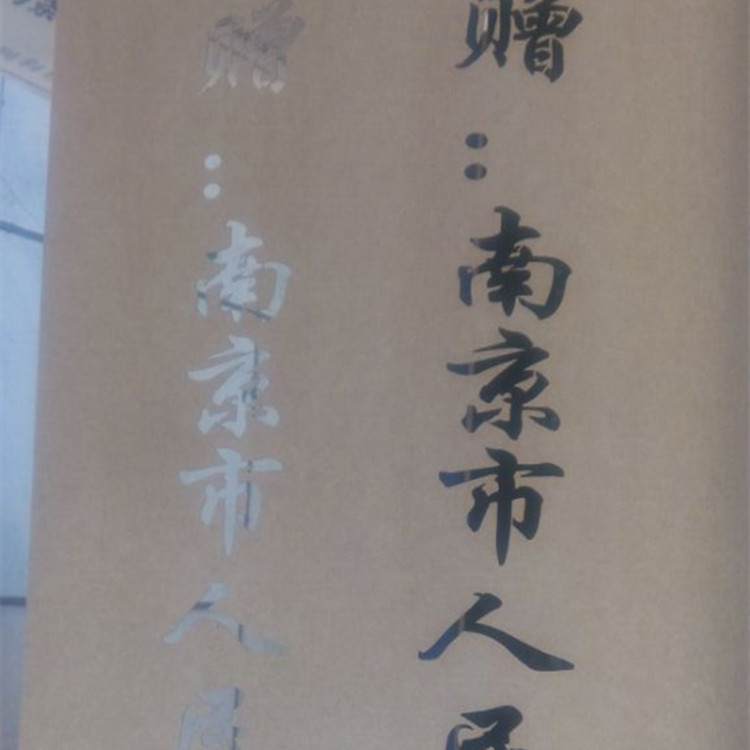 赠：南京市人民
赠：南京市人民